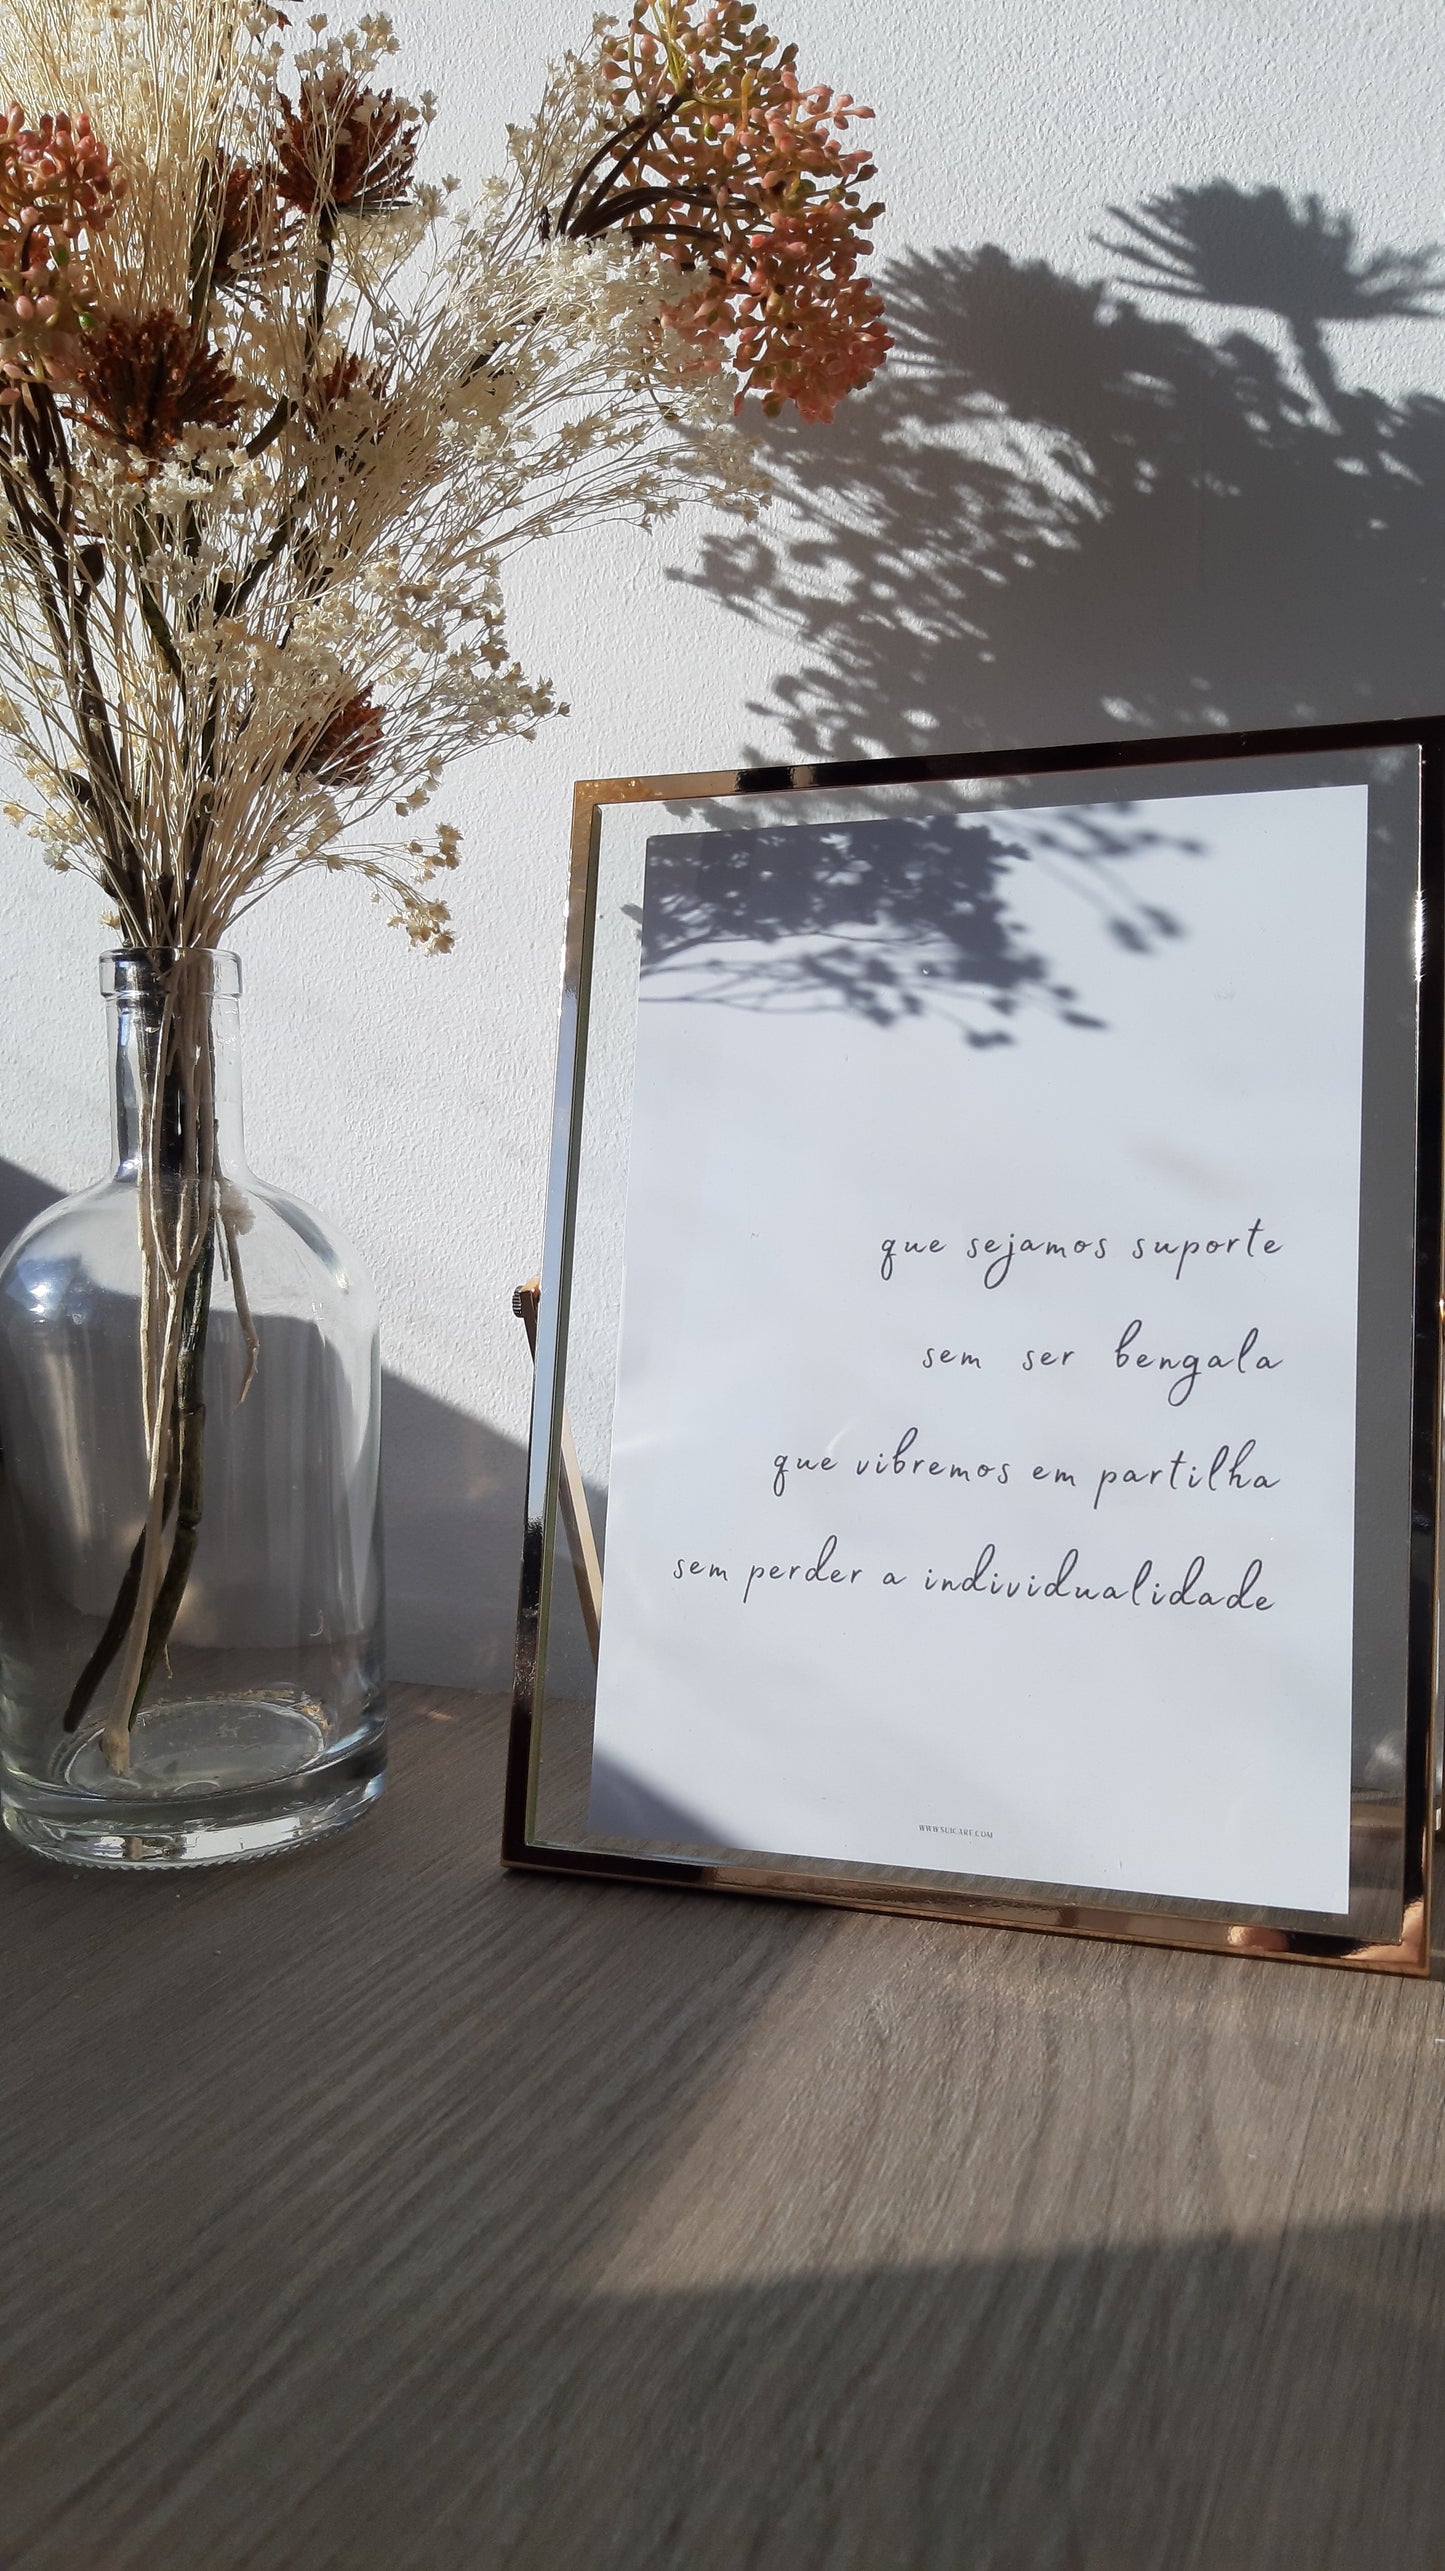 que sejamos suporte
sem ser bengala
que vibremos em partilha
sem perder a individualidade
WWW.SUICARE.COM